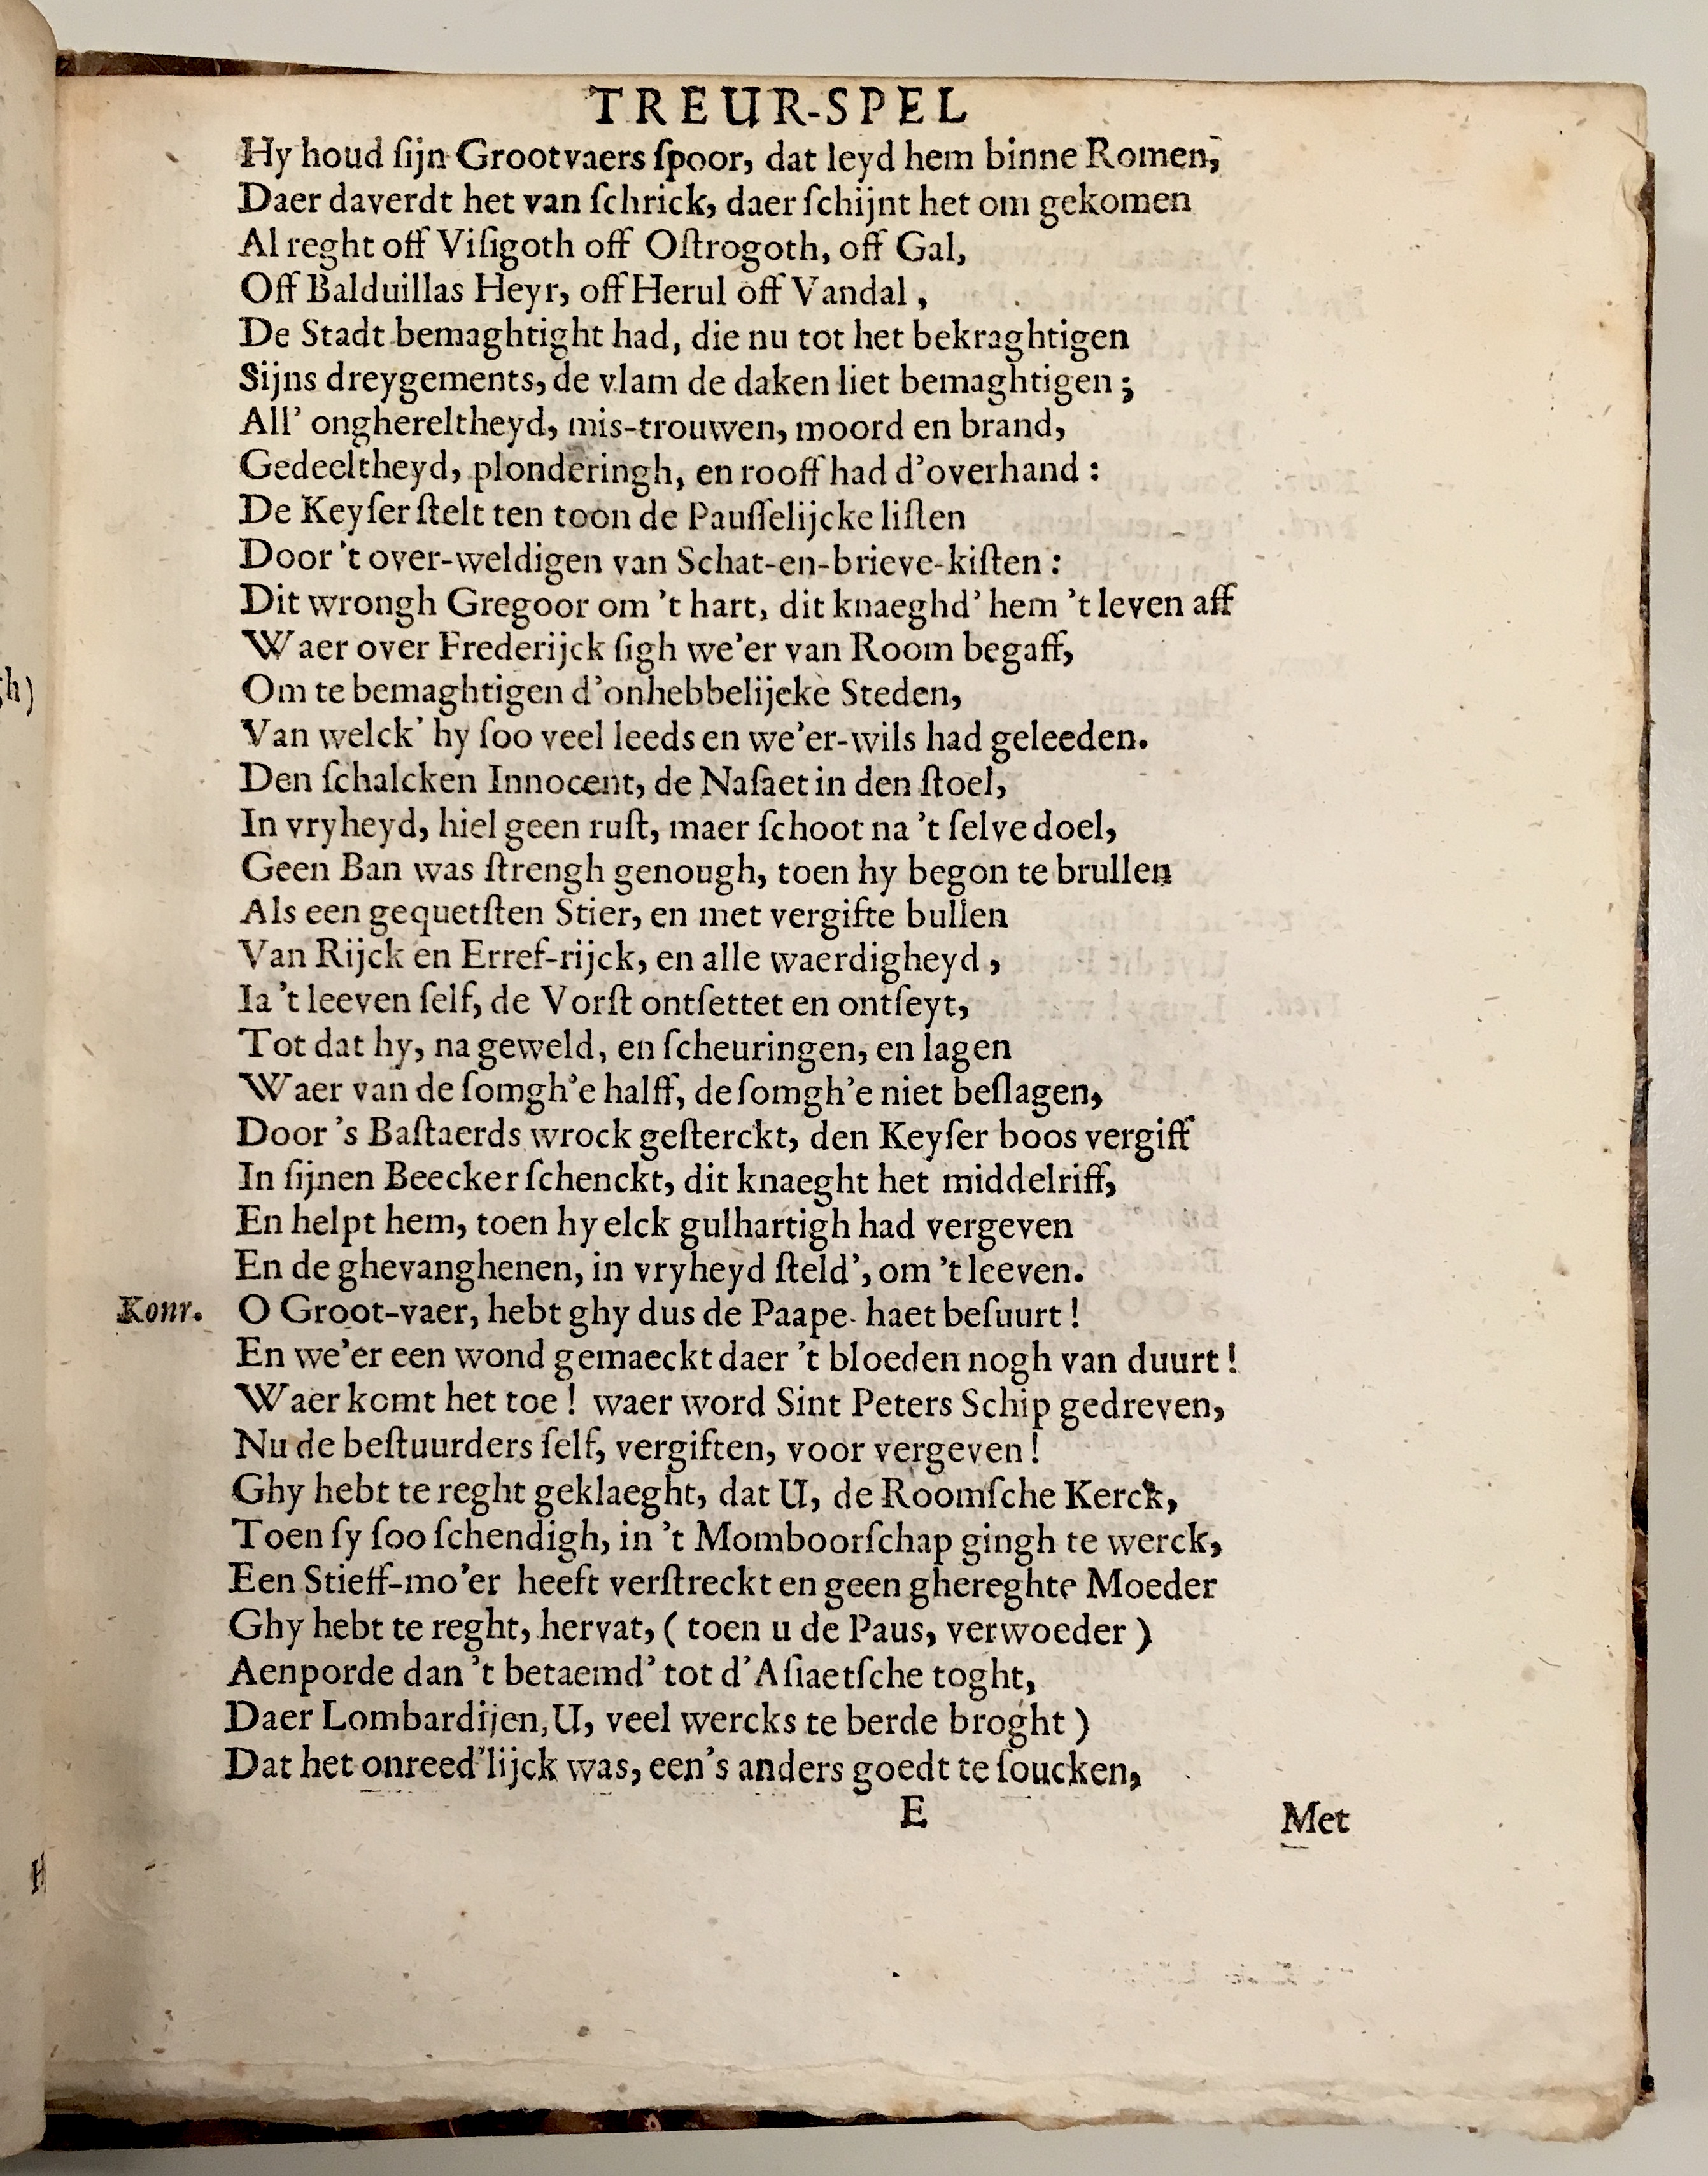 TREUR-SPEL
Hy houd ſijn Grootvaers ſpoor, dat leyd hem binne Romen,
Daer daverdt het van ſchrick, daer ſchijnt het om gekomen
Al reght off Viſigoth off Oſtrogoth, off Gal,
Off Balduillas Heyr, off Herul off Vandal,
De Stadt bemaghtight had, die nu tot het bekraghtigen
Sijns dreygements, de vlam de daken liet bemaghtigen;
All' onghereltheyd, mis-trouwen, moord en brand,
Gedeeltheyd, plonderingh, en rooff had d'overhand:
De Keyſer ſtelt ten toon de Pauſſelijcke liſten
Door 't over-weldigen van Schat-en-brieve-kiſten:
Dit wrongh Gregoor om 't hart, dit knaeghd' hem 't leven aff
Waer over Frederijck ſigh we'er van Room begaff,
Om te bemaghtigen d'onhebbelijcke Steden,
Van welck' hy ſoo veel leeds en we'er-wils had geleeden.
Den ſchalcken Innocent, de Naſaet in den ſtoel,
In vryheyd, hiel geen ruſt, maer ſchoot na 't ſelve doel,
Geen Ban was ſtrengh genough, toen hy begon te brullen
Als een gequetſten Stier, en met vergifte bullen
Van Rijck en Erref-rijck, en alle waerdigheyd,
Ia 't leeven ſelf, de Vorſt ontſettet en ontſeyt,
Tot dat hy, na geweld, en ſcheuringen, en lagen
Waer van de ſomgh'e halff, de ſomgh'e niet beſlagen,
Door 's Baſtaerds wrock geſterckt, den Keyſer boos vergiff
In ſijnen Beecker ſchenckt, dit knaeght het middelriff,
En helpt hem, toen hy elck gulhartigh had vergeven
En de ghevanghenen, in vryheyd ſteld', om 't leeven.
Konr. O Groot-vaer, hebt ghy dus de Paape haet beſuurt!
En we'er een wond gemaeckt daer 't bloeden nogh van duurt!
Waer komt het toe! waer word Sint Peters Schip gedreven,
Nu de beſtuurders ſelf, vergiften, voor vergeven!
Ghy hebt te reght geklaeght, dat U, de Roomſche Kerck,
Toen ſy ſoo ſchendigh, in 't Momboorſchap gingh te werck,
Een Stieff-mo'er heeft verſtreckt en geen ghereghte Moeder
Ghy hebt te reght, hervat, (toen u de Paus, verwoeder)
Aenporde dan 't betaemd' tot d'Aſiaetſche toght,
Daer Lombardijen, U, veel wercks te berde broght)
Dat het onreed'lijck was, een's anders goedt te ſoucken,
E Met
gh)
H